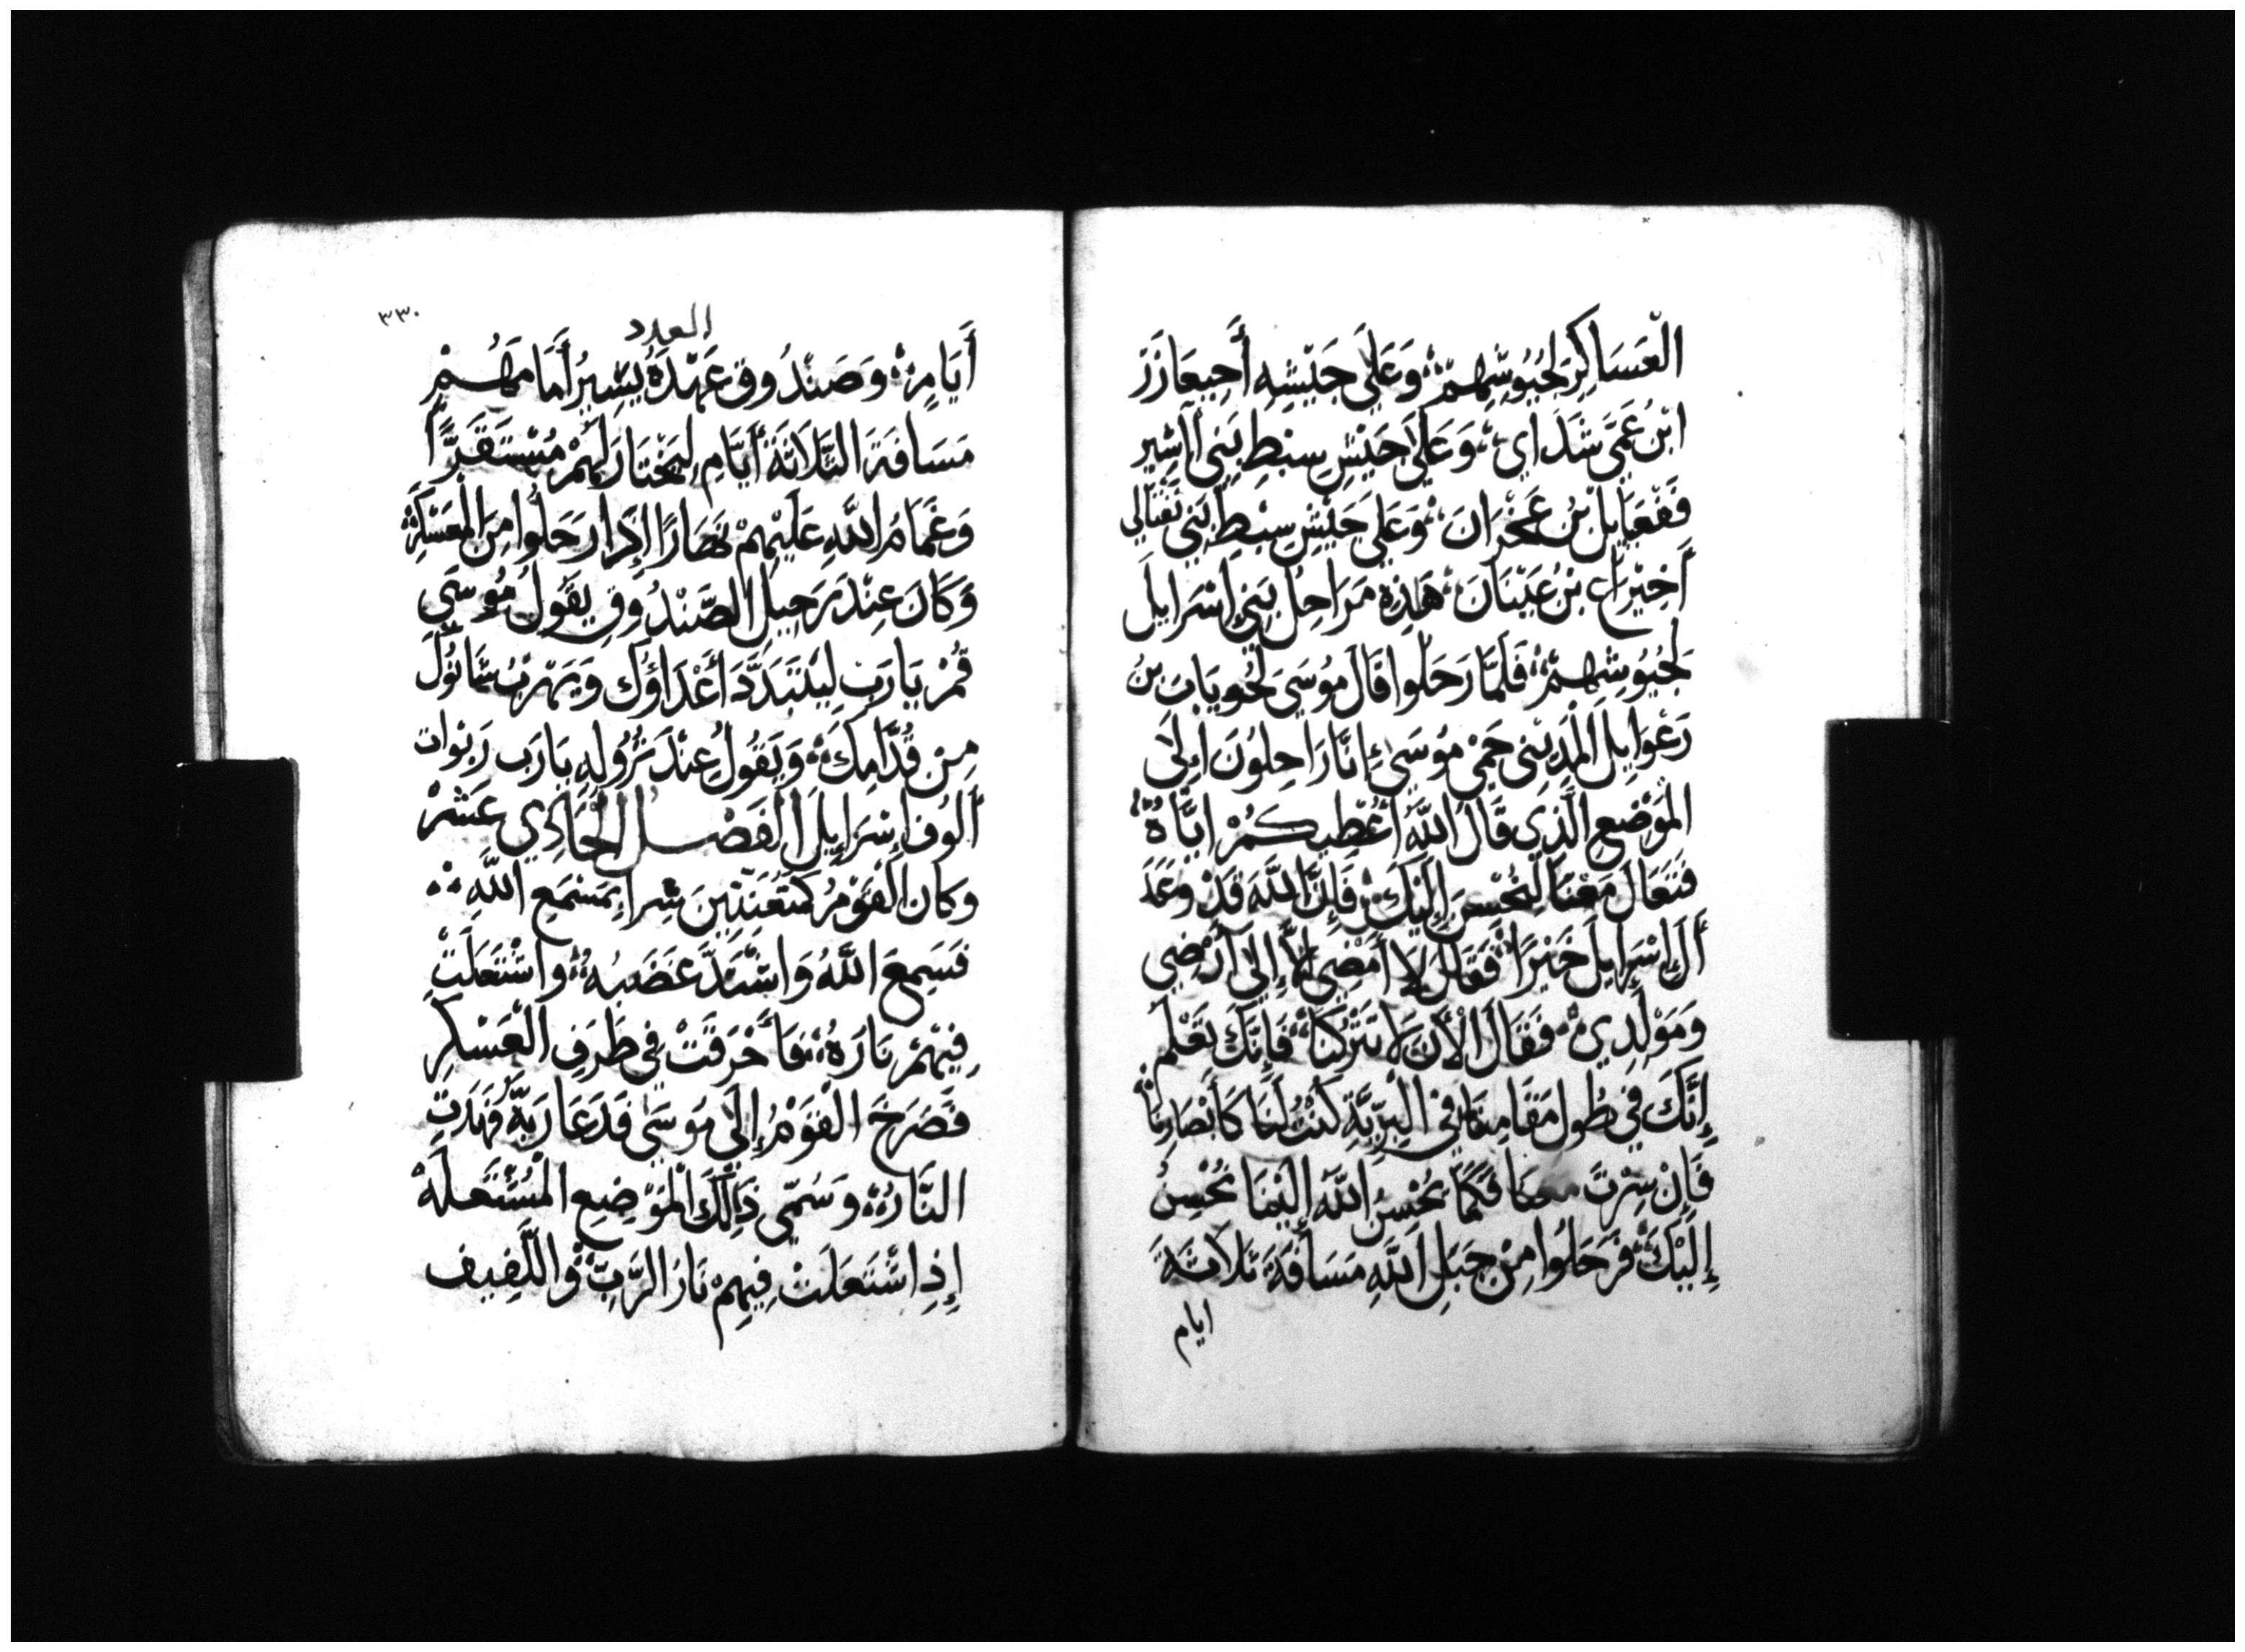 الْعَسَاكِرِ لِجُيُوشِهِمْ؞ وَعَلَى جَيْشِهِ أَحِيعَازَرَ
ابْنُ عَمِّي شَدَاي؞ وَعَلَى جَيْشِ سِبْطِ بَنِي آشِير
فَفْعَيَايل بْن عَخْرَانَ؞ وَعَلَى جَيْشِ سِبْطِ بَنِي نَفْتَالِي
أَخِيْرَاع بْنُ عَيْنَانَ؞ هَذِهِ مَرَاحِلُ بَنِي إِسْرَايلَ
لِجُيُوشِهِمْ؞ فَلَمَّا رَحَلُوا قَالَ مُوسَى لِحُويَاب بْنُ
رَعْوَايلَ الْمَدِيْنِي حَمِي مُوسَى إِنَّا رَاحِلُونَ اِلَى
الْمَوْضِعِ الَّذِي قَالَ اللَّهُ أُعْطِيكُمْ اِيَّاهُ؞
فَتَعَالَ مَعَنَا لِنُحْسِنَ إِلَيْكَ؞ فَإِنَّ اللَّهَ قَدْ وَعَدَ
أَلَ إِسْرَايلَ خَيْرًا؞ فَقَالَ لَا أَمْضِي إِلَّا إِلَى أَرْضِي
وَمَوْلِدِي؞ فَقَالَ الْأَنَ لَا تَتْرُكْنَا؞ فَإِنَّكَ تَعْلَم
إِنَّكَ فِي طُولِ مَقَامِنَا فِي الْبَرِّيَّةِ كُنْتَ لَنَا كَأَبْصَارِنَا؞
فَإِنْ سِرْتَ مَعَنَا فَكَمَا يُحْسِنُ اللَّهُ إِلَيْنَا نُحْسِنُ
إِلَيْكَ؞ فَرَحَلُوا مِنْ جَبَلِ اللَّهِ مَسَافَةَ ثَلَاثَةَ
ايام
العدد
٣٣٠
أَيَامٍ؞ وَصَنْدُوق عَهْدَهُ يَسِيرُ أَمَامَهُمْ
مَسَافَةَ الثَّلَاثَةَ أَيَّامِ لِيَخْتَارَ لَهُمْ مُسْتَقَرًّا
وَغَمَامُ اللَّهِ عَلَيْهِمْ نَهَارًا إِذَا رَحَلُوا مِنَ الْمُعَسْكَرِ؞
وَكَانَ عِنْدَ رَحِيلِ الصَّنْدُوقِ يَقُولُ مُوسَى
قُمْ يَا رَبِ لِيَتَبَدَّدَ أَعْدَاؤُكَ وَيَهْرَبُ شَانُوكَ
مِنْ قُدَّامِكَ؞ وَيَقُولُ عِنْدَ نُزُولِهِ يَا رَب رَبْوَات
أُلُوف إِسْرَايِلَ الفَصْل الْحَادِي عَشَرْ
وَكَان الْقَوْمُ كَمُتَعَنِّتِينَ شِرا بِمَسْمَعِ اللَّهِ؞
فَسَمِعَ اللَّهُ وَاشْتَدَّ غَضَبُهُ؞ وَاشْتَعَلَتْ
فِيْهِمْ نَارَهُ؞ فَأَحْرَقَتْ فِي طَرَفِ الْعَسْكَرِ
فَصَرَخَ الْقَوْمُ إِلَى مُوسَى فَدَعَا رَبَّهُ فَهَدَتِ
النَّارُ؞ وَسُمِّي ذَالِكَ الْمَوْضِعِ الْمُشْتَعِلَهْ
إِذِ اشْتَعَلَتْ فِيهِمْ نَارُ الرَّبِّ؞ وَاللَّفِيف